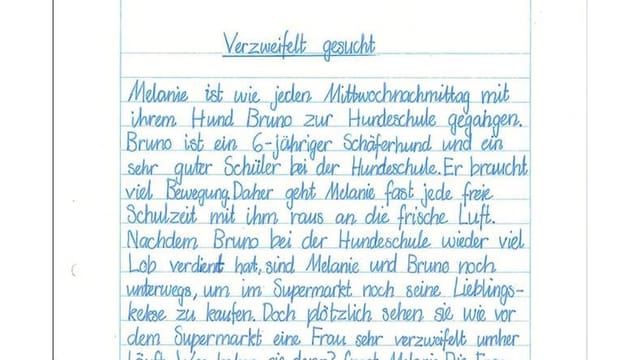 Verzweifelt gesucht
Melanie ist wie jeden Mittwochnachmittag mit
ihrem Hund Bruno zur Hundeschule gegangen.
Bruno ist ein 6-jähriger Schäferhund und ein
sehr guter Schüler bei der Hundeschule. Er braucht
viel Bewegung. Daher geht Melanie fast jede freie
Schulzeit mit ihm raus an die frische Luft.
Nachdem Bruno bei der Hundeschule wieder viel
Lob verdient hat, sind Melanie und Bruno noch
unterwegs, um im Supermarkt noch seine Lieblings-
kekse zu kaufen. Doch plötzlich sehen sie wie vor
dem Supermarkt eine Frau sehr verzweifelt umher
Melanie. Die Frau